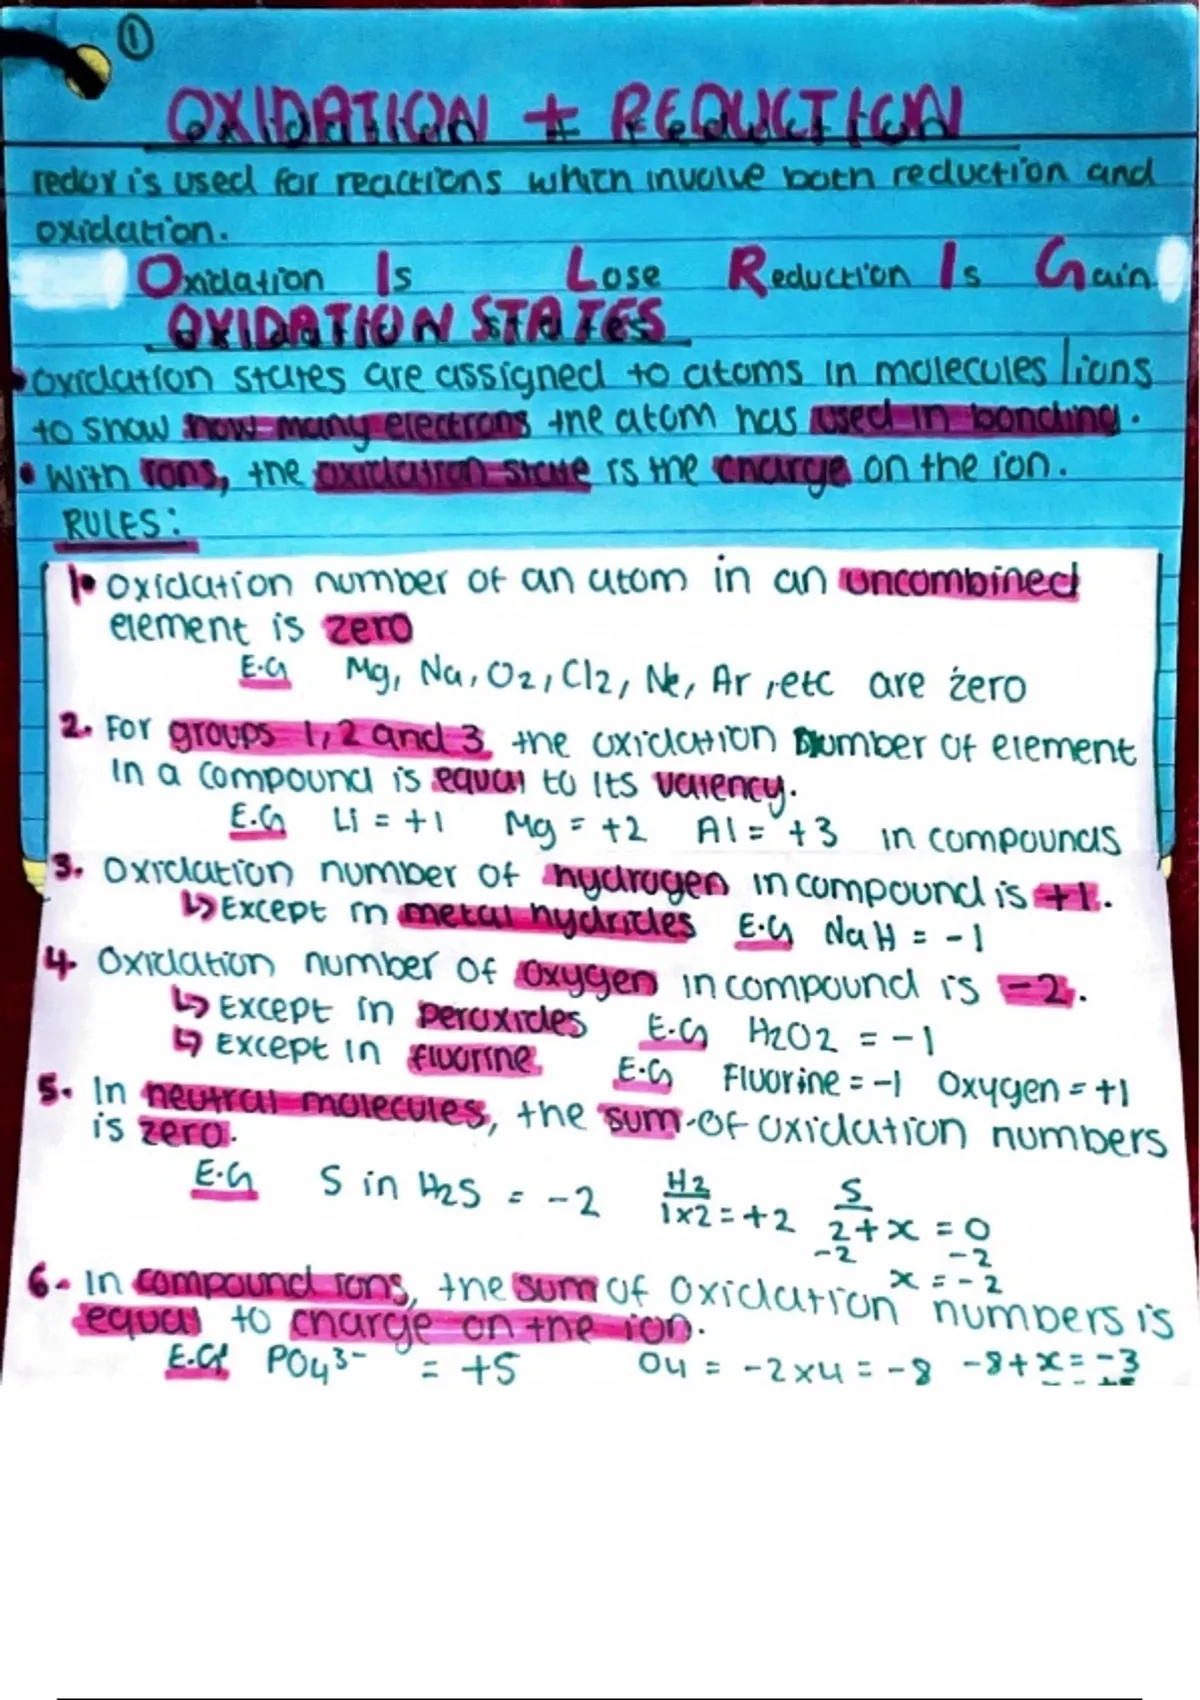 ①
OXIDATION + REDUCTION
redox is used for reactions which involve both reduction and
oxidation.
Oxidation Is Lose Reduction Is Gain
OXIDATION STATES
oxidation states are assigned to atoms in molecules / ions
to show how many electrons the atom has used in bonding.
• With ions, the oxidation state is the charge on the ion.
RULES:
1• Oxidation number of an atom in an uncombined
element is zero
E.G Mg, Na, O2, Cl2, Ne, Ar, etc are zero
2. For groups 1, 2 and 3 the oxidation number of element
in a compound is equal to its valency.
E.G Li = +1 Mg = +2 Al = +3 in compounds
3. Oxidation number of hydrogen in compound is +1.
↳ Except in metal hydrides E.G NaH = -1
4. Oxidation number of oxygen in compound is -2.
↳ Except in peroxides E.G H2O2 = -1
↳ Except in fluorine E.G Fluorine = -1 Oxygen = +1
5. In neutral molecules, the sum of oxidation numbers
is zero.
E.G S in H2S = -2 H2 S
1x2 = +2 2+x = 0
-2 -2
x = -2
6. In compound ions, the sum of oxidation numbers is
equal to charge on the ion.
E.G PO4 3- = +5 O4 = -2x4 = -8 -8+x = -3